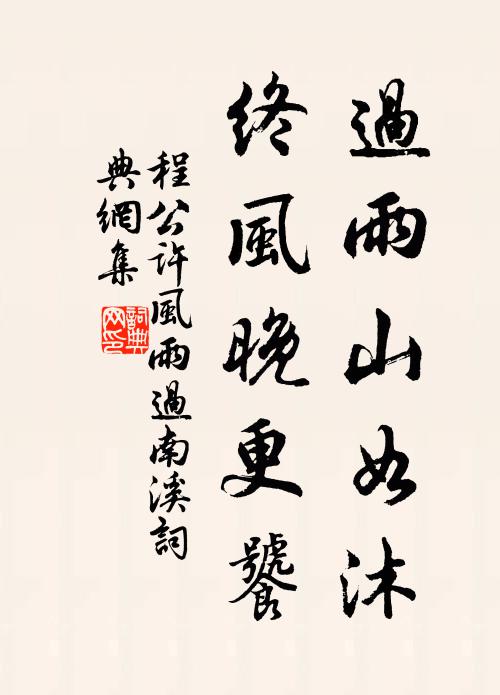 過雨山如沐
終風晚更饕
程公許風雨過南溪詞
典網集
詞典
网印